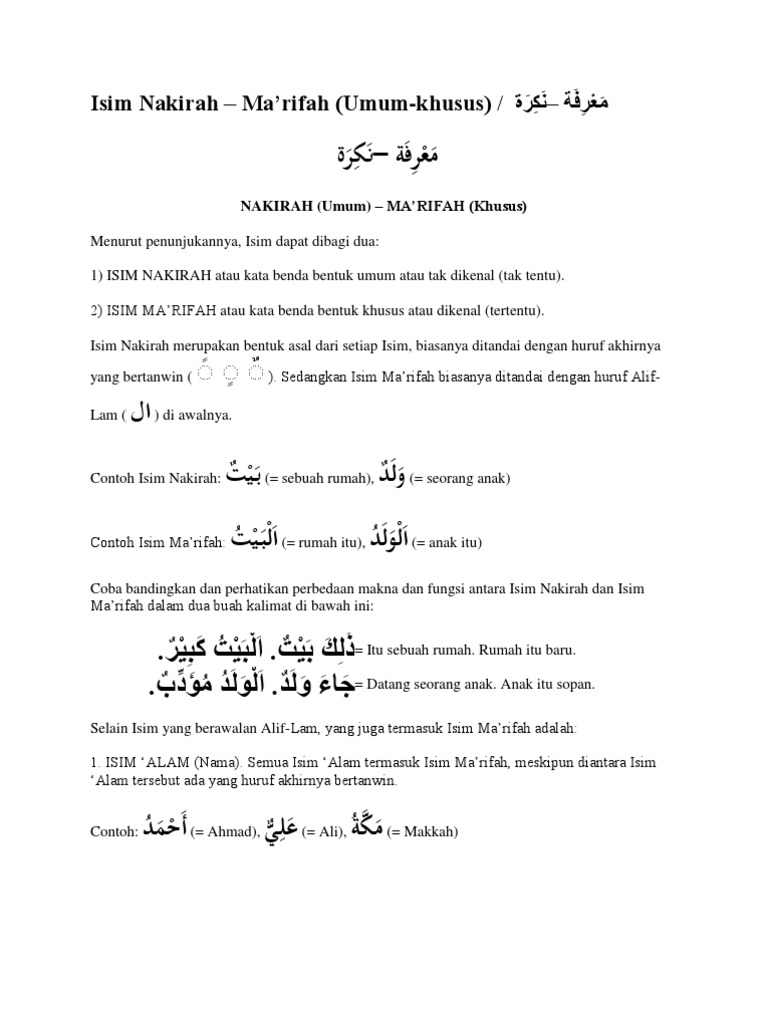 Isim Nakirah – Ma’rifah (Umum-khusus) / نَكِرَة– مَعْرِفَة
مَعْرِفَة –نَكِرَة
NAKIRAH (Umum) – MA’RIFAH (Khusus)
Menurut penunjukannya, Isim dapat dibagi dua:
1) ISIM NAKIRAH atau kata benda bentuk umum atau tak dikenal (tak tentu).
2) ISIM MA’RIFAH atau kata benda bentuk khusus atau dikenal (tertentu).
Isim Nakirah merupakan bentuk asal dari setiap Isim, biasanya ditandai dengan huruf akhirnya
yang bertanwin ( ً ٍ ٌ ). Sedangkan Isim Ma’rifah biasanya ditandai dengan huruf Alif-
Lam ( ال ) di awalnya.
Contoh Isim Nakirah: بَيْتٌ (= sebuah rumah), وَلَدٌ (= seorang anak)
Contoh Isim Ma’rifah: اَلْبَيْتُ (= rumah itu), اَلْوَلَدُ (= anak itu)
Coba bandingkan dan perhatikan perbedaan makna dan fungsi antara Isim Nakirah dan Isim
Ma’rifah dalam dua buah kalimat di bawah ini:
ذَلِكَ بَيْتٌ. اَلْبَيْتُ كَبِيْرٌ. = Itu sebuah rumah. Rumah itu baru.
جَاءَ وَلَدٌ. اَلْوَلَدُ مُؤَدِّبٌ. = Datang seorang anak. Anak itu sopan.
Selain Isim yang berawalan Alif-Lam, yang juga termasuk Isim Ma’rifah adalah:
1. ISIM ‘ALAM (Nama). Semua Isim ‘Alam termasuk Isim Ma’rifah, meskipun diantara Isim
‘Alam tersebut ada yang huruf akhirnya bertanwin.
Contoh: أَحْمَدُ (= Ahmad), عَلِيٌّ (= Ali), مَكَّةُ (= Makkah)